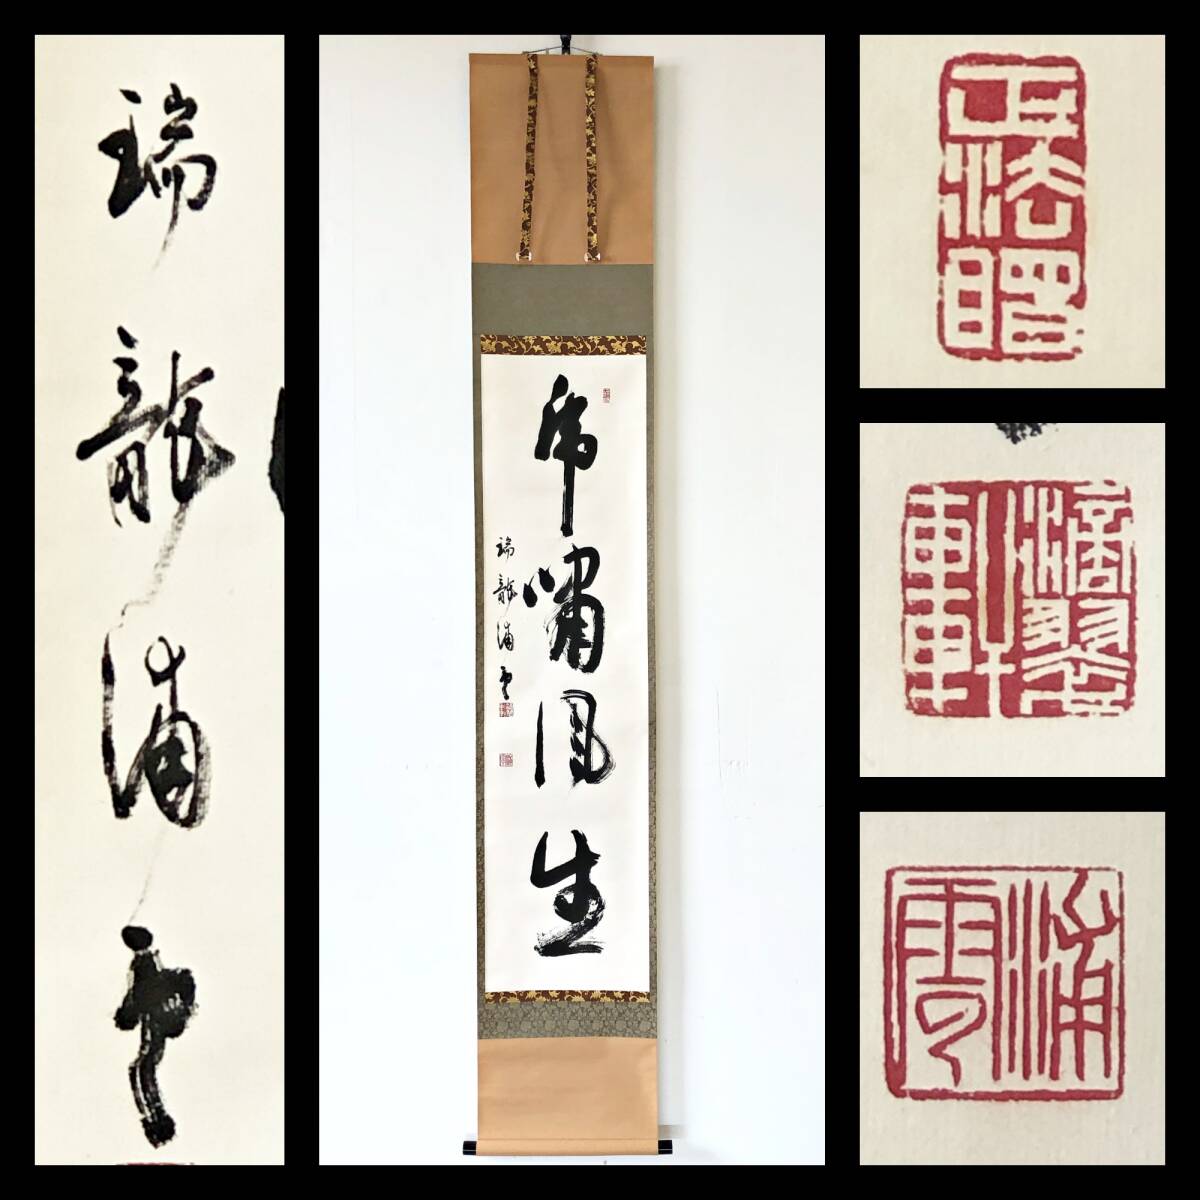 瑞龍浦雲
虎嘯風生
瑞龍浦雲
正法眼
浦雲